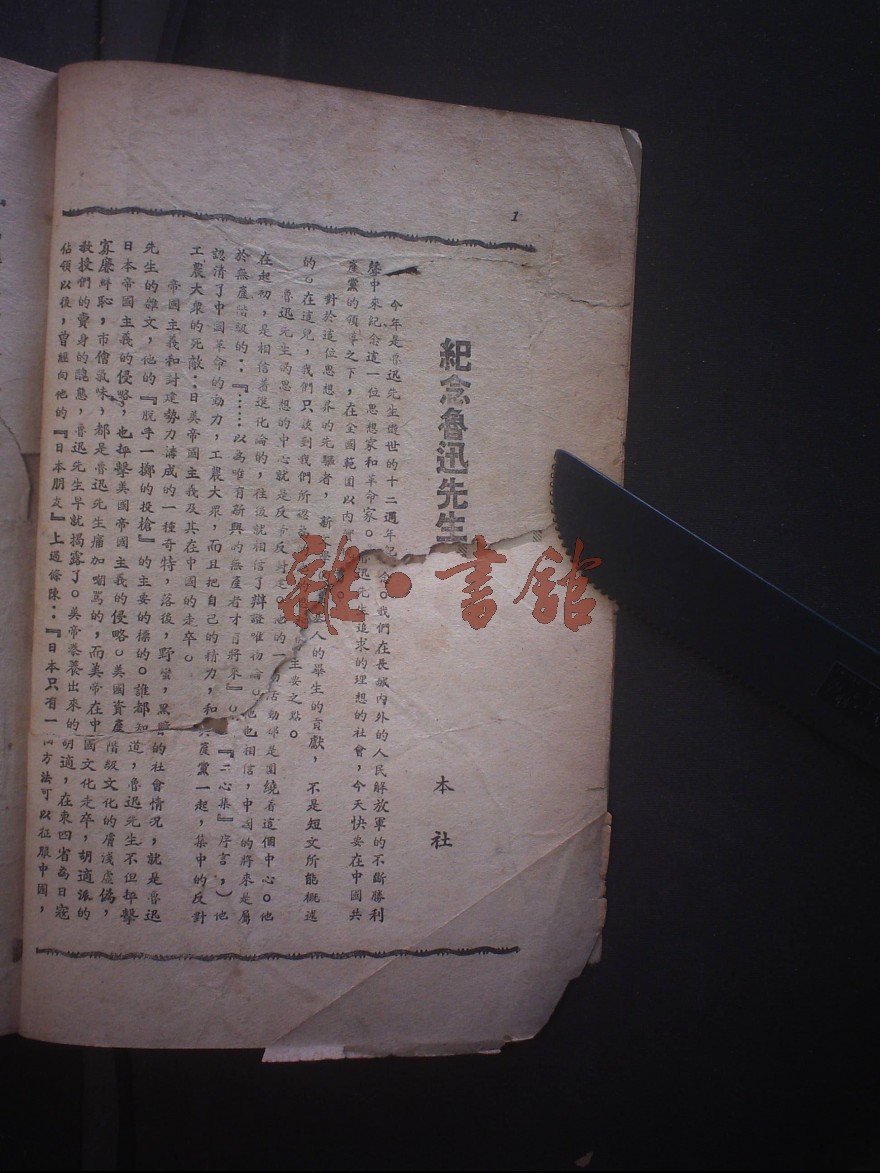 1
紀念魯迅先生
本社
今年是魯迅先生逝世的十二週年紀念。我們在長城內外的人民解放軍的不斷勝利
聲中來紀念這一位思想家和革命家。迅先生追求的理想的社會,今天快要在中國共
產黨的領導之下,在全國範圍以內實
對於這位思想界的先驅者,新文學人的畢生的貢獻,不是短文所能概述
的。在這兒,我們只談到我們所認主要之點。
魯迅先生的思想的中心就是反帝反封建。他的一切活動都是圍繞着這個中心。他
在起初,是相信着進化論的,往後就相信了辯證唯物論。他也相信,中國的將來是屬
於無產階級的:『……以為唯有新興的無產者才有將來』。『二心集』序言,)他
認清了中國革命的動力,工農大衆,而且把自己的精力,和共產黨一起,集中的反對
工農大衆的死敵:日美帝國主義及其在中國的走卒。
帝國主義和封建勢力溝成的一種奇特,落後,野蠻,黑暗的社會情況,就是魯迅
先生的雜文,他的『脫手一擲的投槍』的主要的標的。誰都知道,魯迅先生不但抨擊
日本帝國主義的侵略,也抨擊美國帝國主義的侵略。美國資產階級文化的膚淺虛僞,
寡廉鮮恥,市儈氣味,都是魯迅先生痛加嘲罵的,而美帝在中國文化走卒,胡適派的
教授們的賣身的醜態,魯迅先生早就揭露了。美帝豢養出來的胡適,在東四省爲日寇
佔領以後,曾經向他的『日本朋友』上過條陳:『日本只有一個方法可以征服中國,
雜·書館